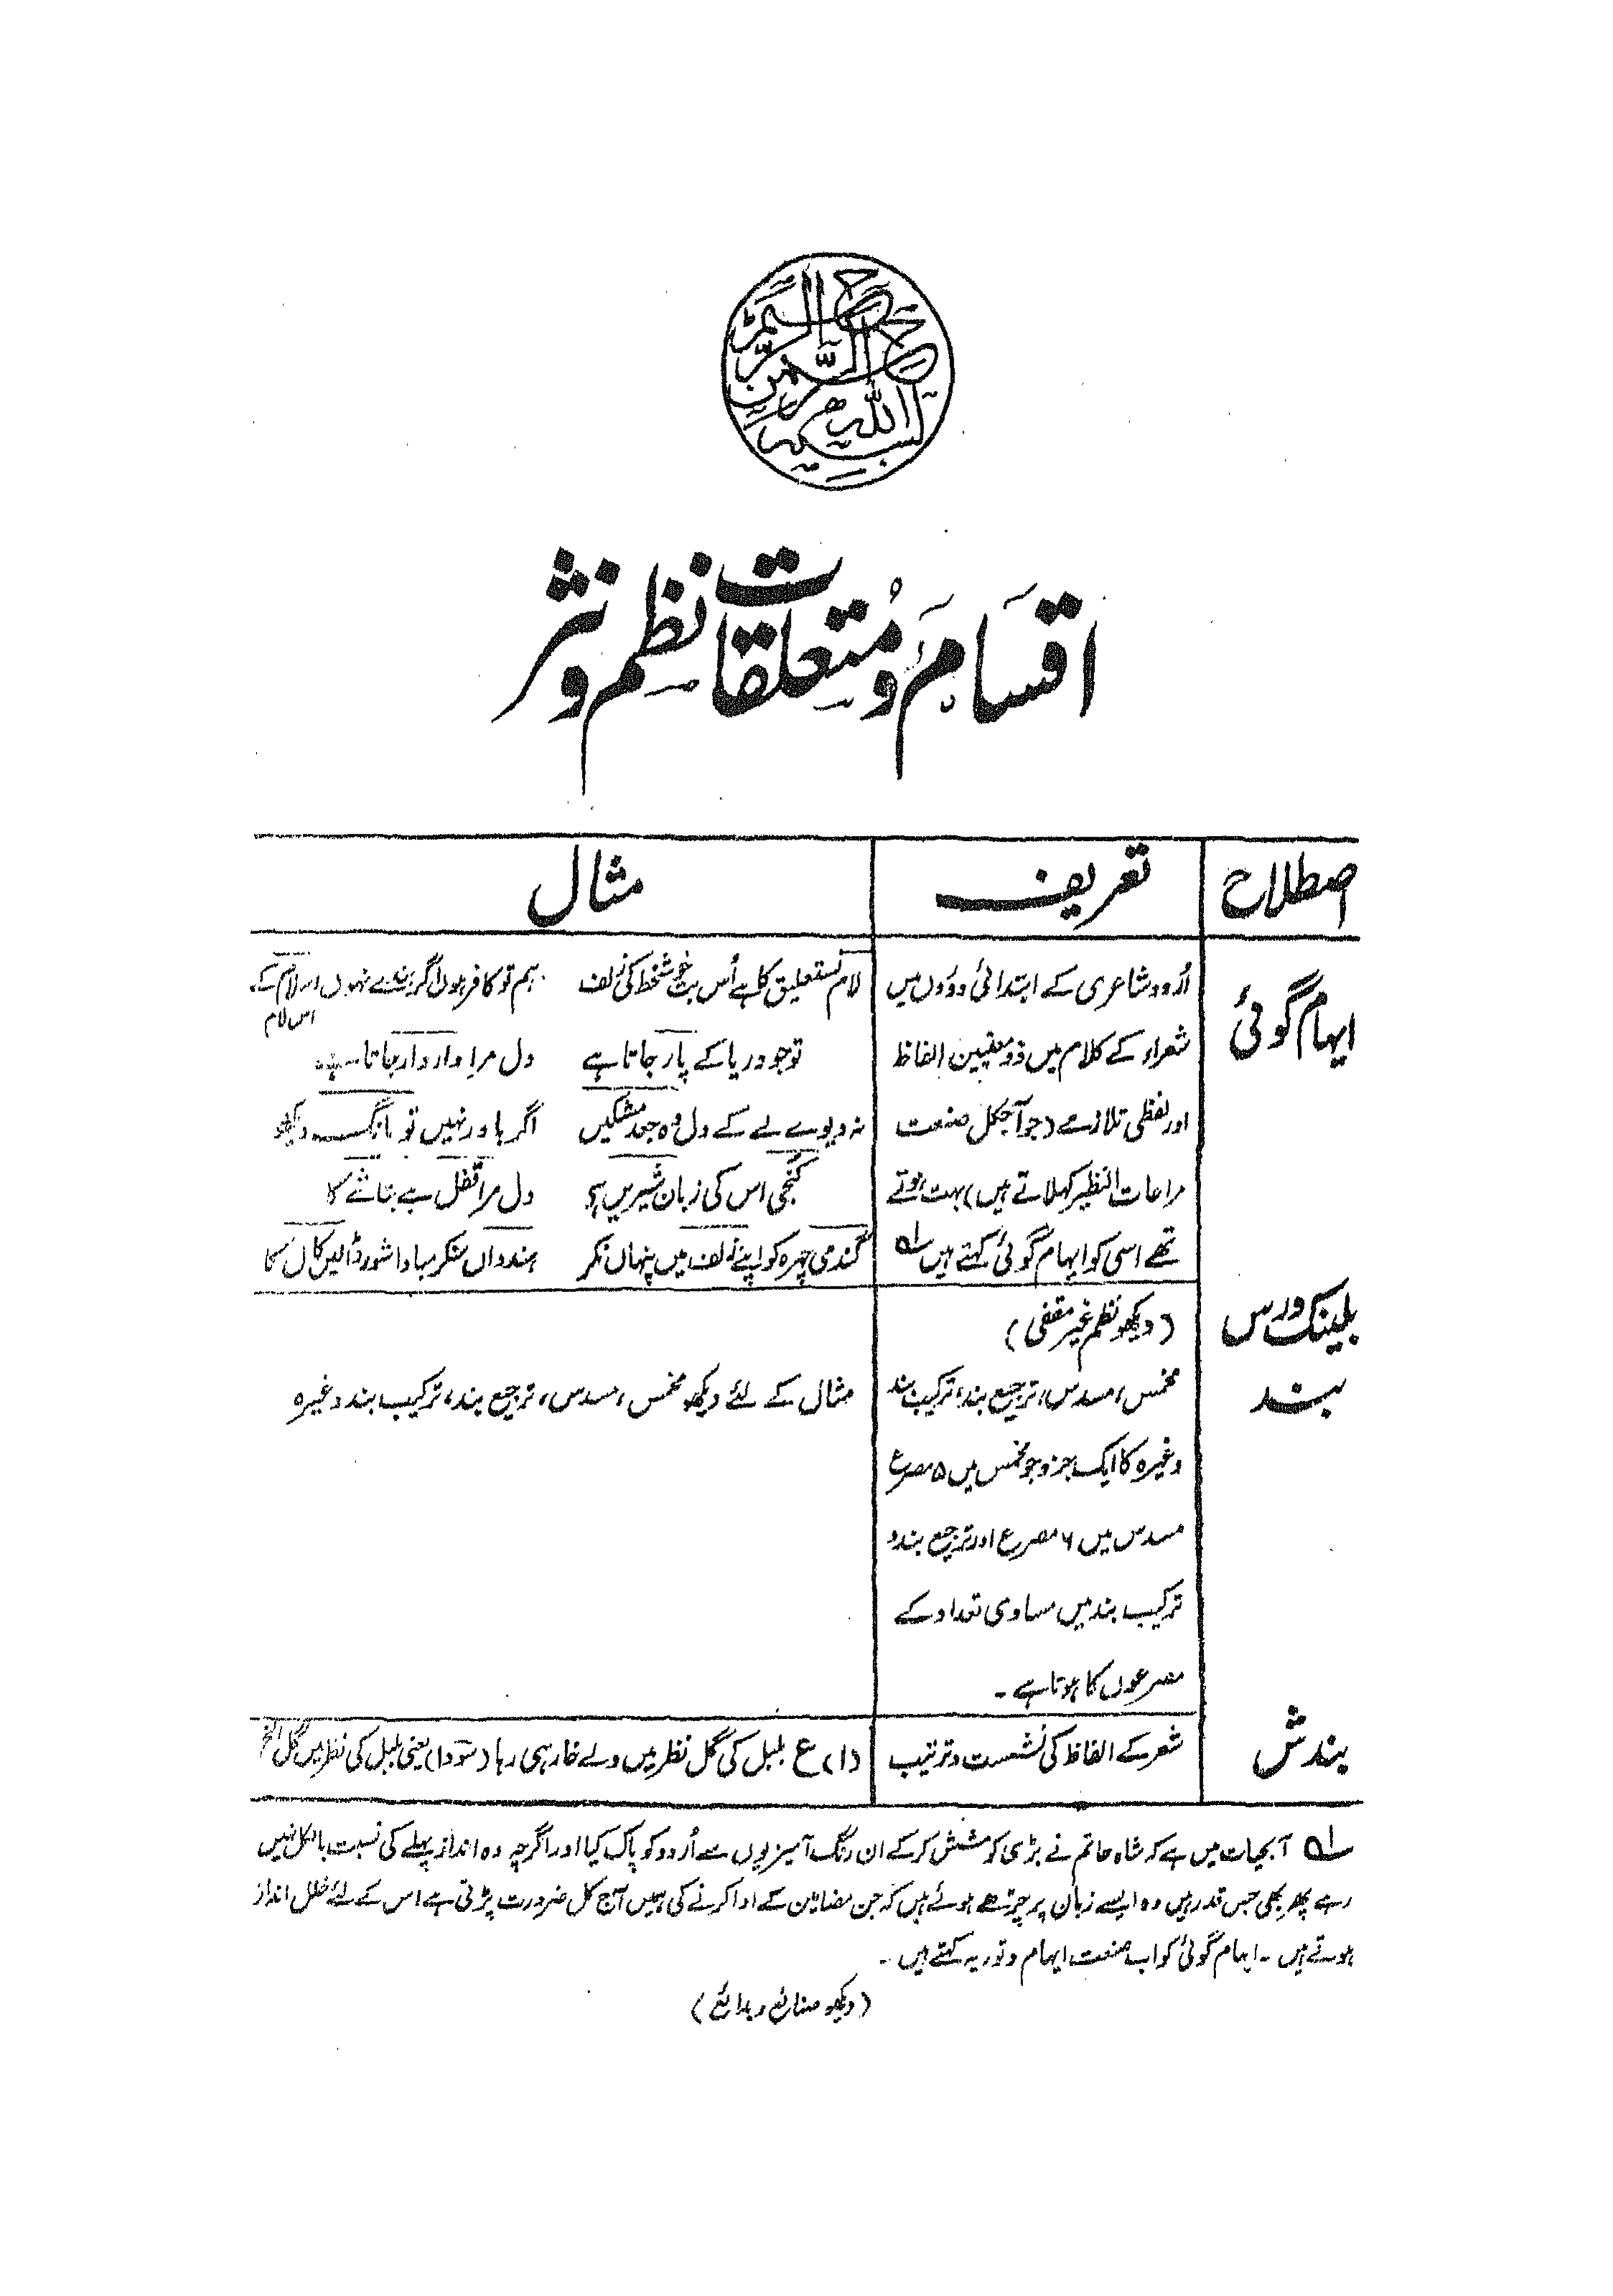 بسم اللہ الرحمن الرحیم
اقسام و متعلقات نظم و نثر
اصطلاح
تعریف
مثال
ایہام گوئی
اُردو شاعری کے ابتدائی دوروں میں
شعراء کے کلام میں ذومعنیین الفاظ
اور لفظی تلازمے (جو آجکل صنعت
مراعات النظیر کہلاتے ہیں) بہت ہوتے
تھے اسی کو ایہام گوئی کہتے ہیں لہ
لام نستعلیق کا ہے اُس بت خوشخط کی زلف
ہم تو کافر ہوں اگر بندے نہوں اسلام کے
اس لام
تو جو دریا کے پار جاتا ہے
دل مرا وار وار جاتا ہے
نہ دیوے لے کے دل وہ جعد مشکیں
اگر باور نہیں تو مانگ دیکھ
کنجی اس کی زبان شیریں ہے
دل مرا قفل ہے بتاشے کا
گندمی چہرہ کو اپنے زلف میں پنہاں نکر
ہندواں سنکر مبادا شور ڈالیں کال کا
بلینک ورس
(دیکھو نظم غیر مقفی)
بند
مخمس، مسدس، ترجیع بند، ترکیب بند
وغیرہ کا ایک جزو جو مخمس میں ۵ مصرع
مسدس میں ۶ مصرع اور ترجیع بند و
ترکیب بند میں مساوی تعداد کے
مصرعوں کا ہوتا ہے ۔
مثال کے لئے دیکھو مخمس، مسدس، ترجیع بند، ترکیب بند وغیرہ
بندش
شعر کے الفاظ کی نشست و ترتیب
(۱) ع بلبل کی گل نظر میں ولے خار ہی رہا (سودا) یعنی بلبل کی نظر میں گل الخ
لہ آبحیات میں ہے کہ شاہ حاتم نے بڑی کوشش کرکے ان رنگ آمیزیوں سے اُردو کو پاک کیا اور اگرچہ وہ انداز پہلے کی نسبت بالکل نہیں
رہے پھر بھی جس قدر ہیں وہ ایسے زبان پر چڑھے ہوئے ہیں کہ جن مضامین کے ادا کرنے کی ہمیں آج کل ضرورت پڑتی ہے اس کے لئے خلل انداز
ہوتے ہیں ۔ ایہام گوئی کو اب صنعت ایہام و توریہ کہتے ہیں ۔
(دیکھو صنائع و بدائع)